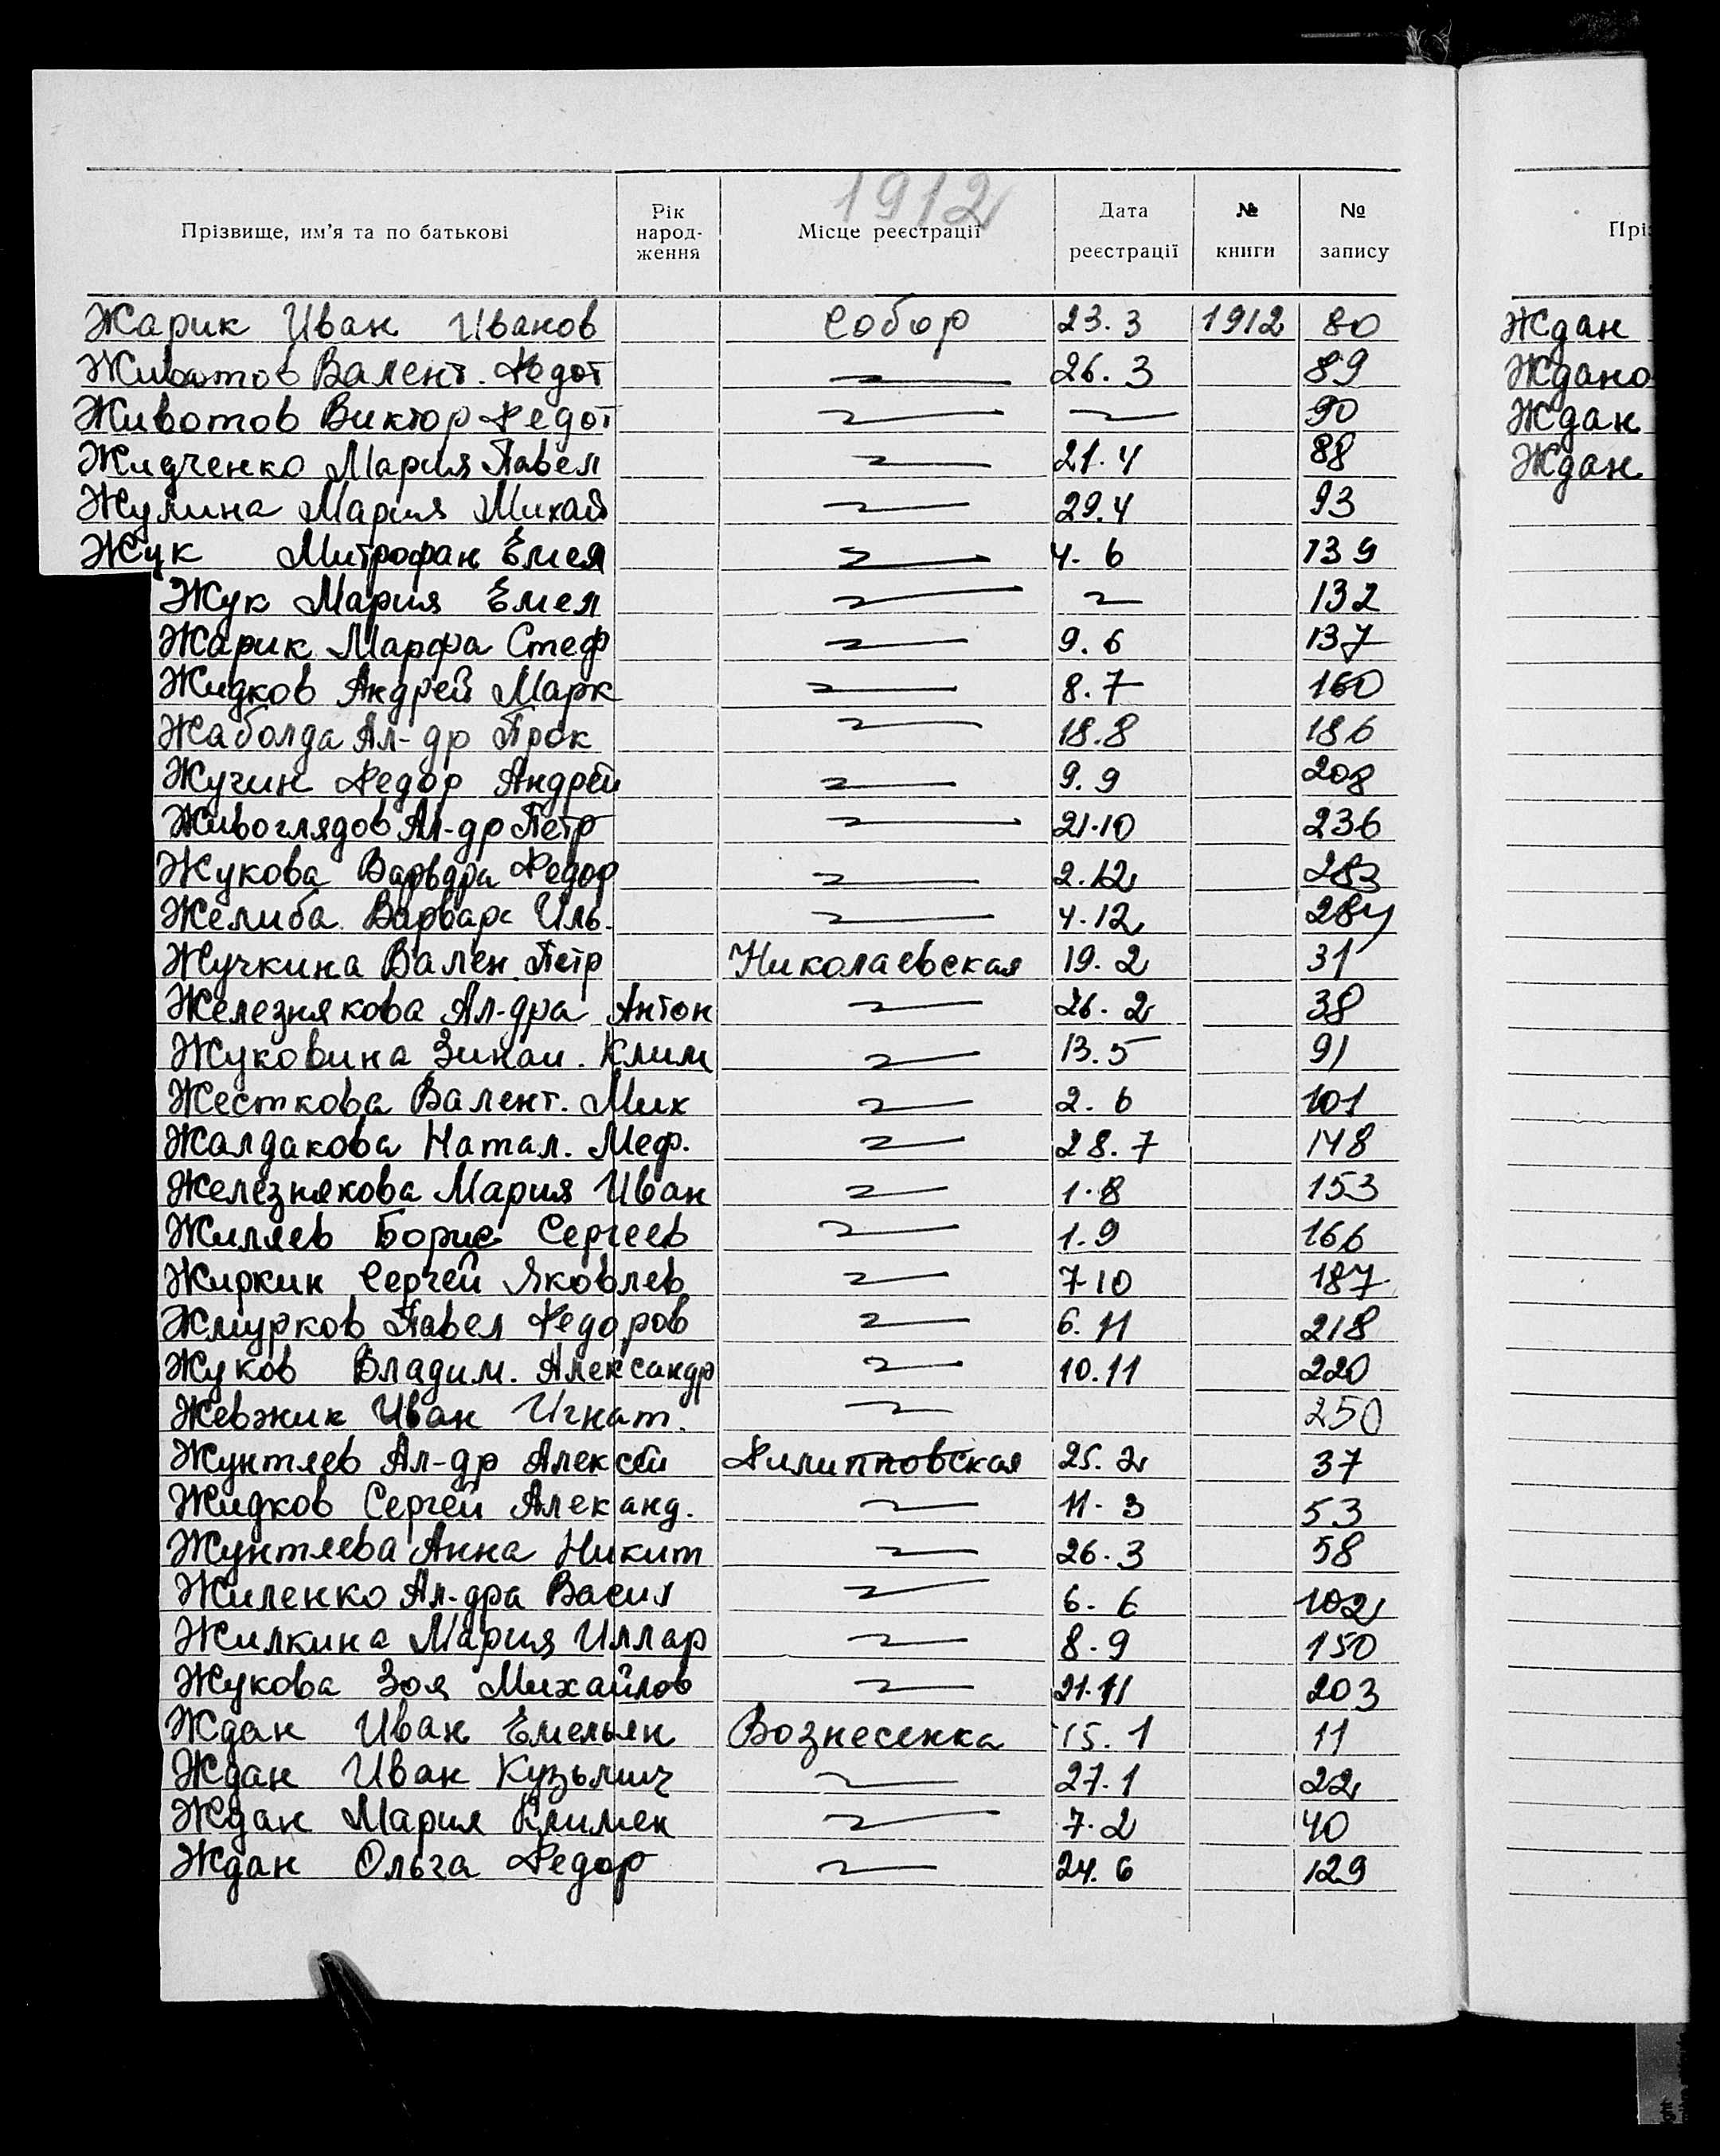 1912
Прізвище, им’я та по батькові | Рік народження | Місце реєстрації | Дата реєстрації | № книги | № запису
Жарик Иван Иванов Собор 23.3 1912 80
Животов Валент. Федот 26.3 89
Животов Виктор Федот 90
Жидченко Мария Павел 21.4 88
Жулина Мария Михай 29.4 93
Жук Митрофан Емел 4.6 139
Жук Мария Емел 132
Жарик Марфа Стеф 9.6 137
Жидков Андрей Марк 8.7 160
Жаболда Ал-др Прок 18.8 186
Жучин Федор Андрей 9.9 208
Живоглядов Ал-др Петр 21.10 236
Жукова Варвара Федор 2.12 283
Желиба Варвара Иль. 4.12 284
Жучкина Вален Петр Николаевская 19.2 31
Железнякова Ал-дра Антон 26.2 38
Жуковина Зинаи. Клим 13.5 91
Жесткова Валент. Мих 2.6 101
Жалдакова Натал. Меф. 28.7 148
Железнякова Мария Иван 1.8 153
Жиляев Борис Сергеев 1.9 166
Жиркин Сергей Яковлев 7 10 187
Жмурков Павел Федоров 6.11 218
Жуков Владим. Александр 10.11 220
Жевжик Иван Игнат. 250
Жунтяев Ал-др Алексей Филипповская 25.2 37
Жидков Сергей Алеканд. 11.3 53
Жунтяева Анна Никит 26.3 58
Жиленко Ал-дра Васил 6.6 102
Жилкина Мария Иллар 8.9 150
Жукова Зоя Михайлов 21.11 203
Ждан Иван Емельян Вознесенка 15.1 11
Ждан Иван Кузьмич 27.1 22
Ждан Мария Климен 7.2 40
Ждан Ольга Федор 24.6 129
Ждан
Ждано
Ждан
Ждан